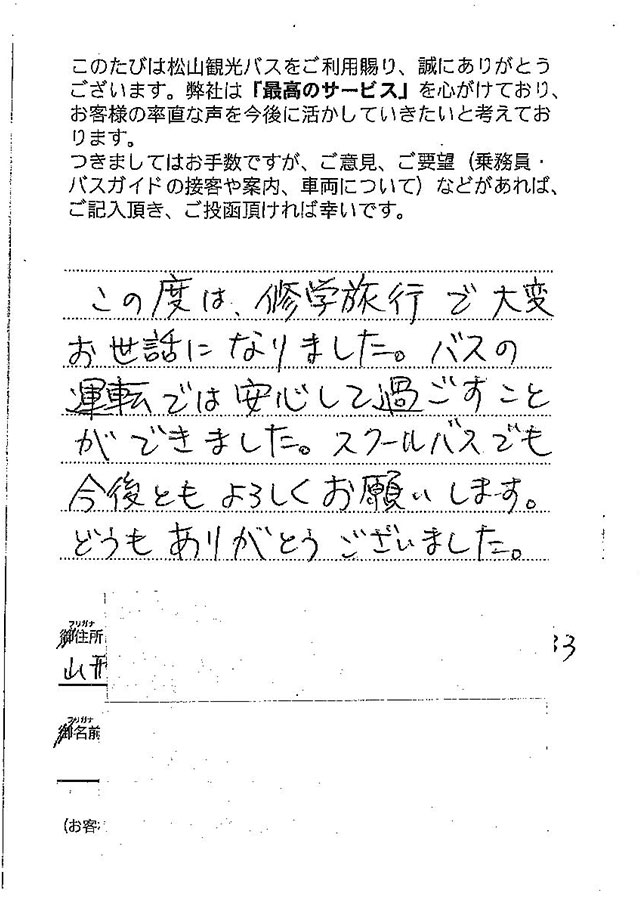 このたびは松山観光バスをご利用賜り、誠にありがとう
ございます。弊社は「最高のサービス」を心がけており、
お客様の率直な声を今後に活かしていきたいと考えてお
ります。
つきましてはお手数ですが、ご意見、ご要望（乗務員・
バスガイドの接客や案内、車両について）などがあれば、
ご記入頂き、ご投函頂ければ幸いです。
この度は、修学旅行で大変
お世話になりました。バスの
運転では安心して過ごすこと
ができました。スクールバスでも
今後ともよろしくお願いします。
どうもありがとうございました。
フリガナ
御住所
山形
33
フリガナ
御名前
（お客